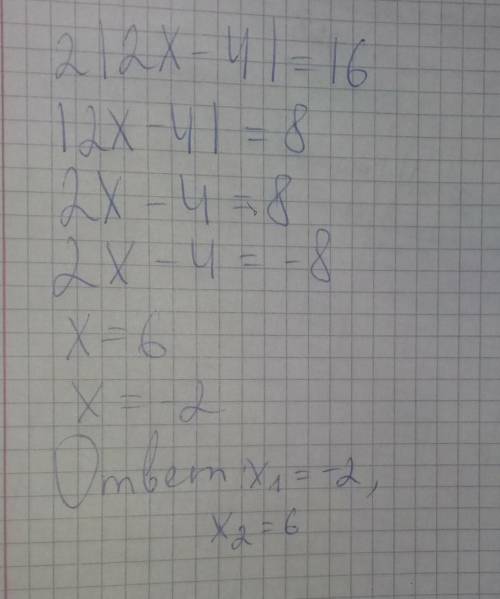 2|2x-4|=16
|2x-4|=8
2x-4=8
2x-4=-8
x=6
x=-2
Ответ: x₁=-2,
x₂=6